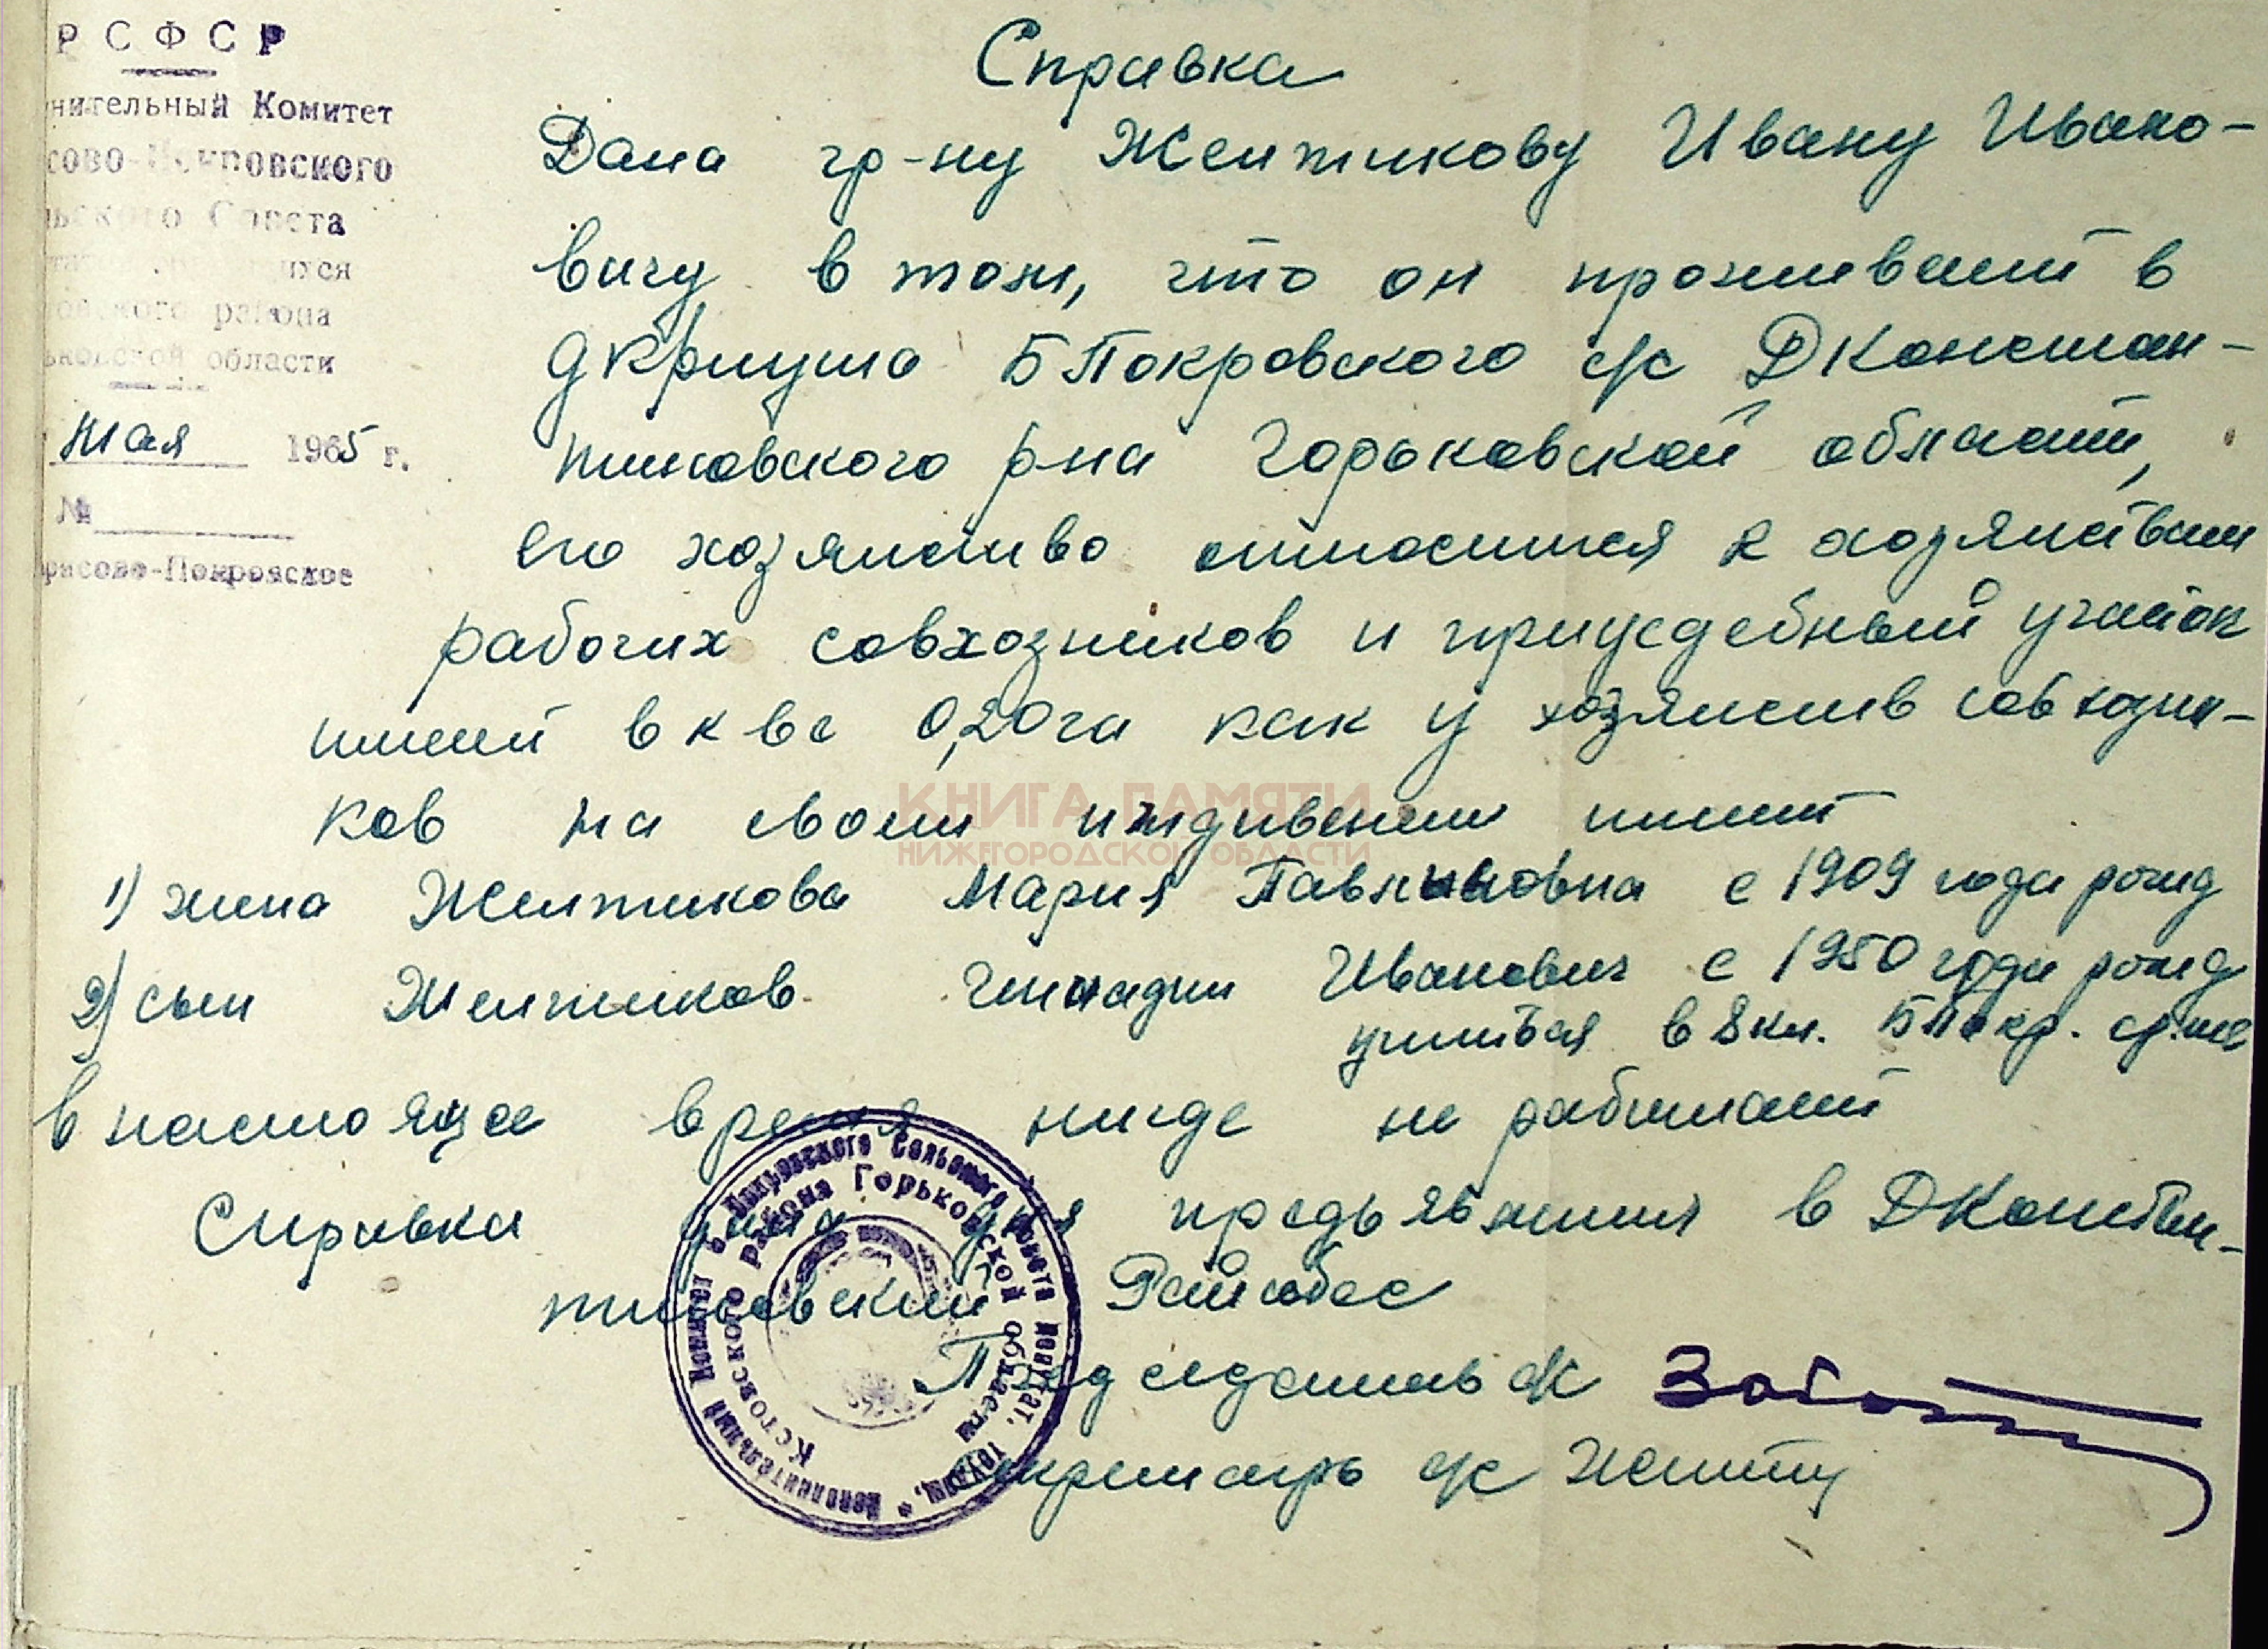 РСФСР
нительный Комитет
сово-Покровского
льского Совета
ихся
овского района
ьковской области
мая 1965 г.
№
рисово-Покровское
Справка
Дана гр-ну Желтикову Ивану Ивано-
вичу в том, что он проживает в
д Криуша БПокровского с/с ДКонстан-
тиновского р-на Горьковской области,
его хозяйство относится к хозяйствам
рабочих совхозников и приусдебный участок
имеет в к ве 0,20га как у хозяйств совхозни-
ков на своем иждивении имеет
1) жена Желтикова Мария Павлиновна с 1909 года рожд
2) сын Желтиков Геннадий Иванович с 1950 года рожд
учится в 8 кл. БПокр. ср. шк
в настояще время нигде не работает
Справка дана для предъявления в ДКонстан-
тиновский Райсобес
Председатель с/с
Секретарь с/с
Исполнительный Комитет Б Покровского Сельского Совета Депутат. трудящ.
Кстовского района Горьковской области
КНИГА ПАМЯТИ
НИЖЕГОРОДСКОЙ ОБЛАСТИ